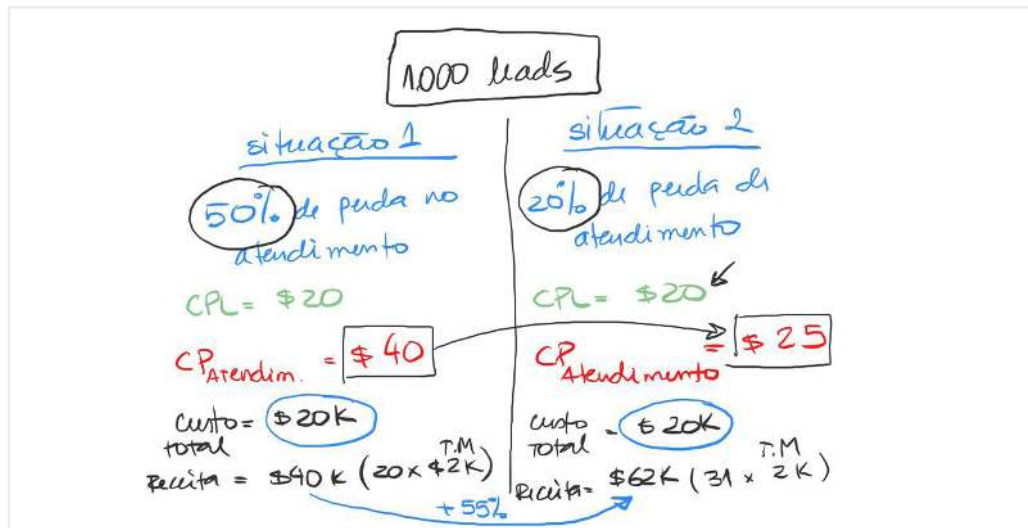 1.000 leads
situação 1
50% de perda no
atendimento
CPL = $20
CP Atendim. = $40
Custo total = $20K
Receita = $40K (20 x $2K) T.M
situação 2
20% de perda de
atendimento
CPL = $20
CP Atendimento = $25
custo total = $20K
Receita = $62K (31 x 2K) T.M
+55%